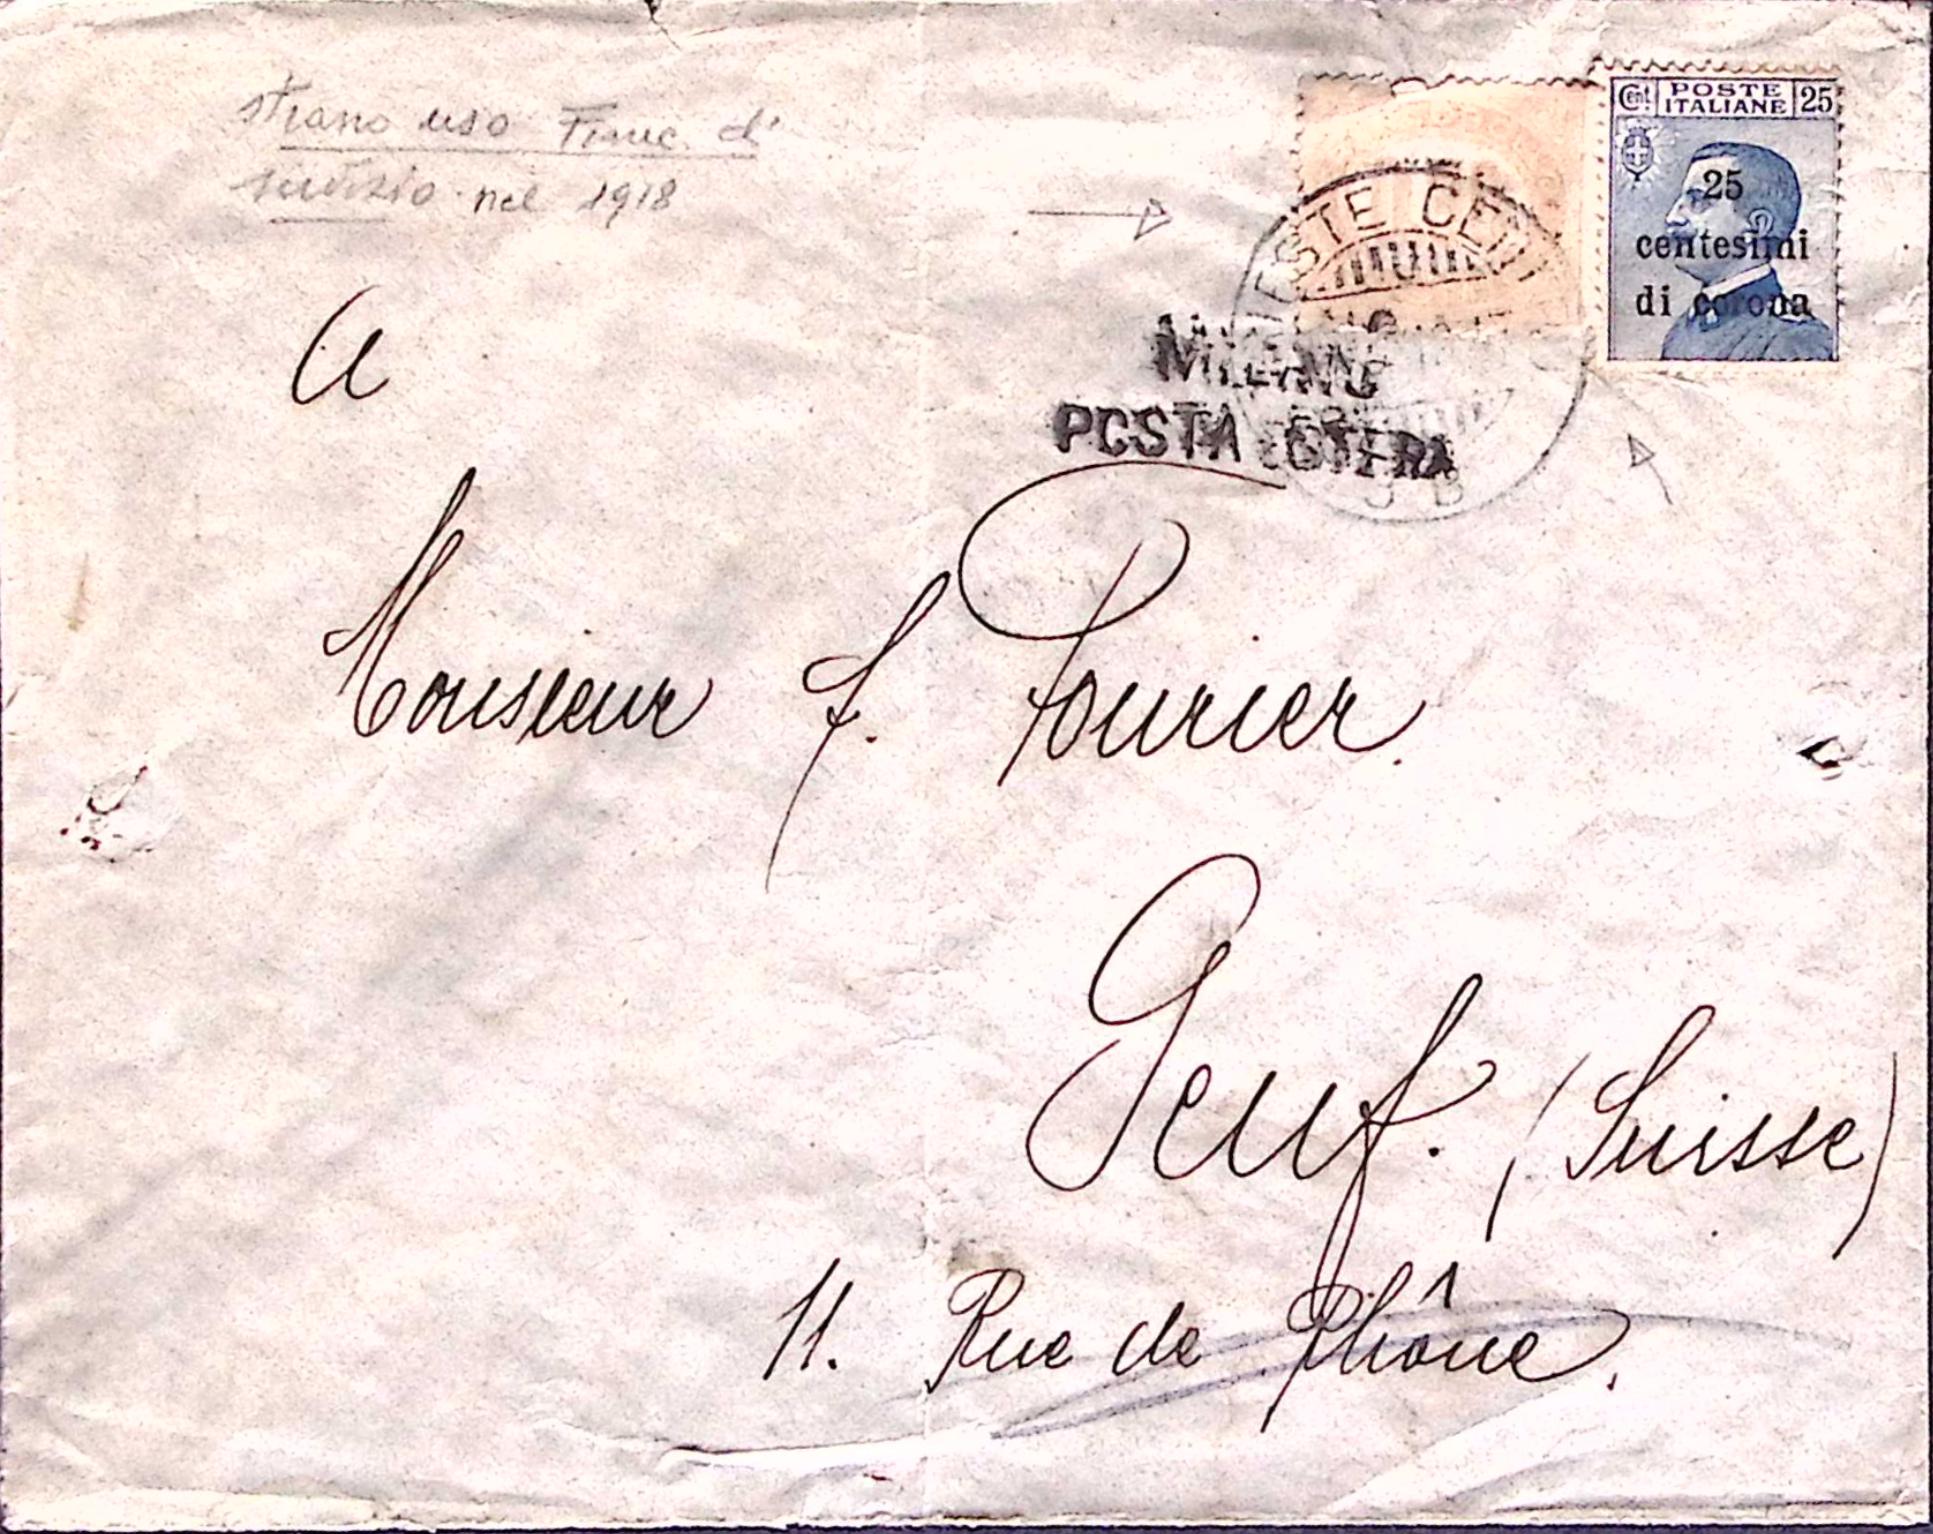 strano uso Franc. di
servizio nel 1918
Cent. POSTE ITALIANE 25
25
centesimi
di corona
MILANO
POSTA ESTERA
A
Monsieur F. Fourier.
Genf. (Suisse)
11. Rue de Rhône.